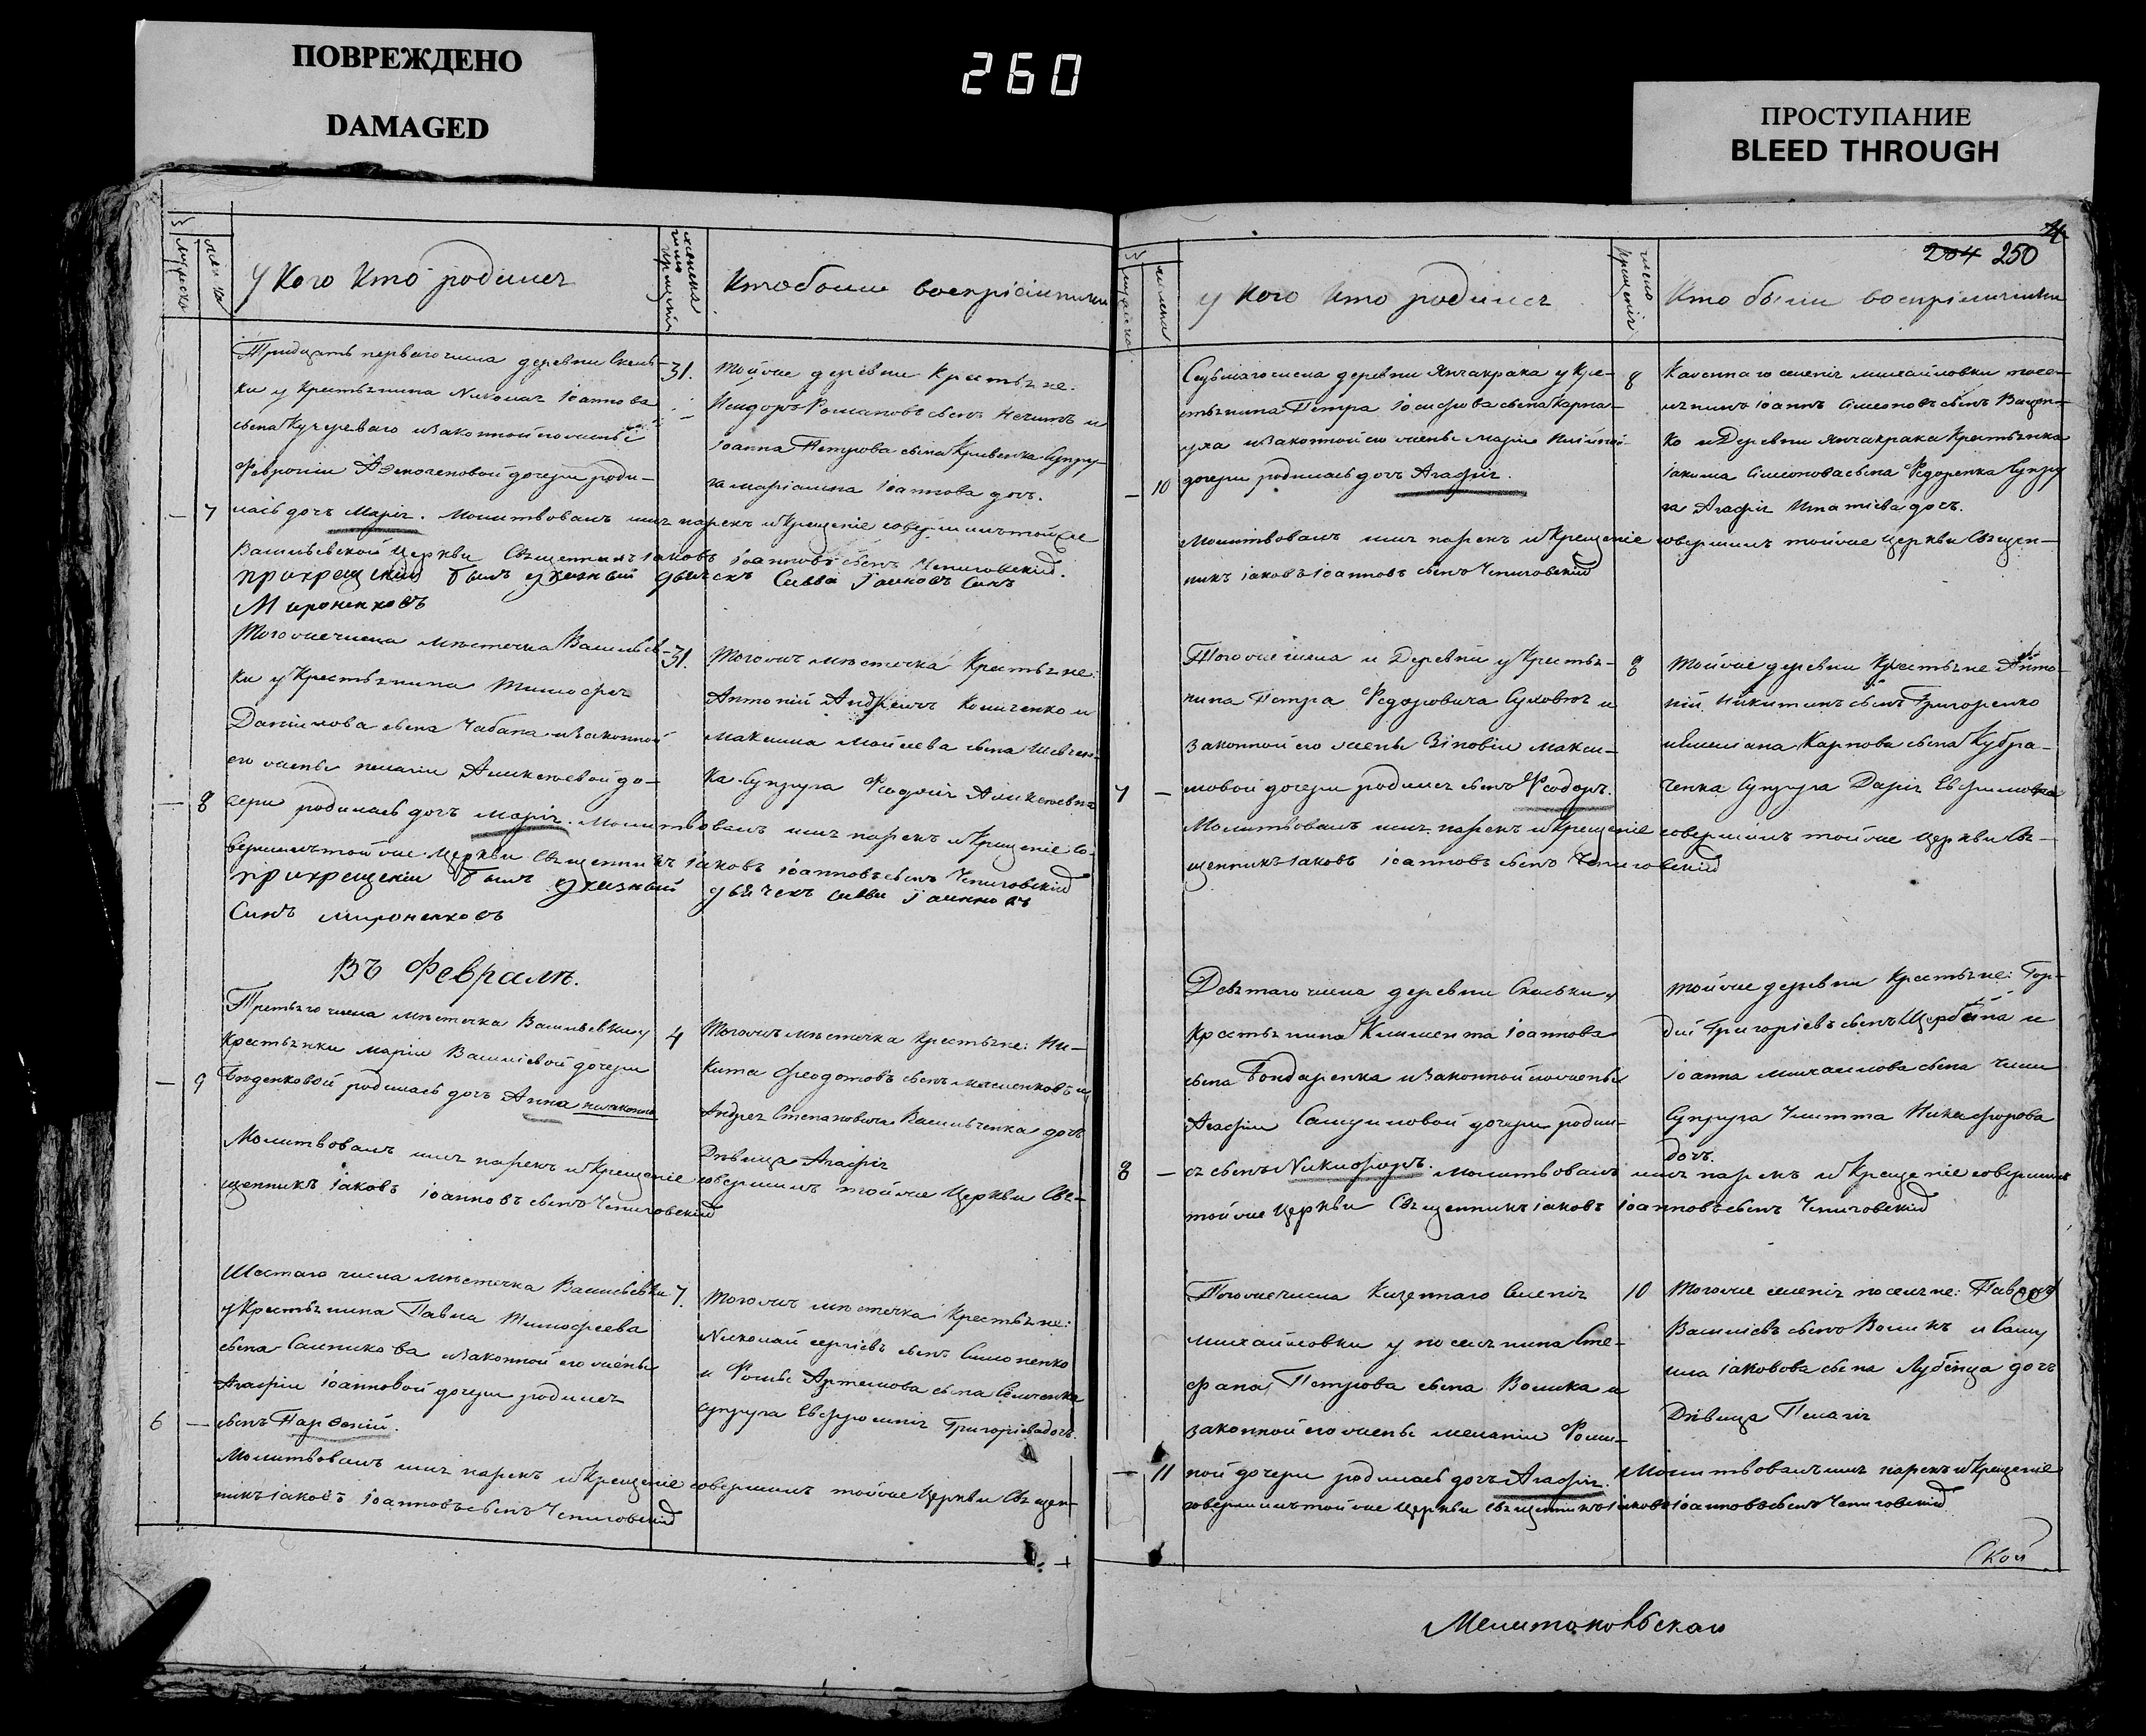 ПОВРЕЖДЕНО
DAMAGED
260
ПРОСТУПАНИЕ
BLEED THROUGH
У Кого Кто родился
Кто были воспріимники
Тридцать перваго числа деревни Скель-
ки у Крестьянина Николая Іоаннова
сына Кучереваго и законной его жены
Февроніи дочери роди-
лась дочь Марія. Молитвовалъ имя нарекъ и Крещеніе совершилъ той же
Васильевской Церкви Священникъ Іаковъ Іоанновъ сынъ Чепиговскій.
при крещеніи былъ указный дьячекъ Савва Іаковъ Синъ
Мироненковъ
31.
Той же деревни Крестьяне:
Исидоръ Романовъ сынъ и
Іоанна Петрова сына Кривенка Супру-
га Маріамна Іоаннова дочь.
7
Того же числа мѣстечка Васильев-
ки у Крестьянина Тимофея
Даніилова сына Чабана и законной
его жены Пелагіи Алексѣевой до-
чери родилась дочь Марія. Молитвовалъ имя нарекъ и Крещеніе со-
вершилъ той же Церкви Священникъ Іаковъ Іоанновъ сынъ Чепиговскій
при крещеніи былъ указный дьячекъ Савва Іаковъ
Синъ Мироненковъ
31.
Того жъ мѣстечка Крестьяне:
Антоній Андреевъ и
Максима Моисеева сына Шевчен-
ка Супруга Феодосія Алексѣевна
8
Въ Февралѣ.
Третьяго числа мѣстечка Васильевки у
Крестьянки Маріи Василіевой дочери
Бѣденковой родилась дочь Анна незаконна
Молитвовалъ имя нарекъ и Крещеніе совершилъ той же Церкви Свя-
щенникъ Іаковъ Іоанновъ сынъ Чепиговскій
4
Того жъ мѣстечка Крестьяне: Ни-
кита Феодотовъ сынъ и
Андрея Степановича Васильченка дочь
Дѣвица Агафія
9
Шестаго числа мѣстечка Васильевки
у Крестьянина Павла Тимофеева
сына Сальникова и законной его жены
Агафіи Іоанновой дочери родился
сынъ Парѳеній.
Молитвовалъ имя нарекъ и Крещеніе совершилъ той же Церкви Священ-
никъ Іаковъ Іоанновъ сынъ Чепиговскій
7.
Того жъ мѣстечка Крестьяне:
Николай Сергіевъ сынъ Симоненко
и Фомы Артемова сына
супруга Евфросинія Григоріева дочь.
6
4
204 250
У Кого Кто родился
число крещенія
Кто были воспріимники
Седьмаго числа деревни Янчакрака у Кре-
стьянина Петра Іосифова сына Карпа-
уха и законной его жены Маріи
дочери родилась дочь Агафія.
Молитвовалъ имя нарекъ и Крещеніе совершилъ той же Церкви Священ-
никъ Іаковъ Іоанновъ сынъ Чепиговскій
8
Казеннаго селенія Михайловки посел-
янинъ Іоаннъ Симеоновъ сынъ Вацен-
ко и Деревни Янчакрака Крестьянка
Іакима Симеонова сына Федоренка Супру
га Агафія Игнатіева дочь.
10
Того же числа и Деревни у Крестья-
нина Петра Федоровича и
законной его жены Зиновіи Макси-
мовой дочери родился сынъ Феодоръ.
Молитвовалъ имя нарекъ и Крещеніе совершилъ той же Церкви Свя-
щенникъ Іаковъ Іоанновъ сынъ Чепиговскій
8
Той же деревни Крестьяне Анто-
ній Никитинъ сынъ Григоренко
и Емеліана Карпова сына Кубра-
ченка Супруга Дарія Евфимова
7
Девятаго числа деревни Скельки у
Крестьянина Климента Іоаннова
сына Бондаренка и законной его жены
Агафіи Самуиловой дочери родил-
ся сынъ Никифоръ. Молитвовалъ имя нарекъ и Крещеніе совершилъ
той же Церкви Священникъ Іаковъ Іоанновъ сынъ Чепиговскій
Той же деревни Крестьяне: Гор-
дій Григоріевъ сынъ Щербина и
Іоанна Михаилова сына
Супруга Улитта Никифорова
дочь.
8
Того же числа Казеннаго Селенія
Михайловки у поселянина Сте-
фана Петрова сына Волика и
законной его жены Меланіи Фоми-
ной дочери родилась дочь Агафія. Молитвовалъ имя нарекъ и Крещеніе
совершилъ той же Церкви Священникъ Іаковъ Іоанновъ сынъ Чепиговскій
10
Того же селенія поселяне: Павелъ
Василіевъ сынъ Воликъ и Саму
ила Іаковова сына Лубенца дочь
Дѣвица Пелагія
11
Ской
Мелитопольская